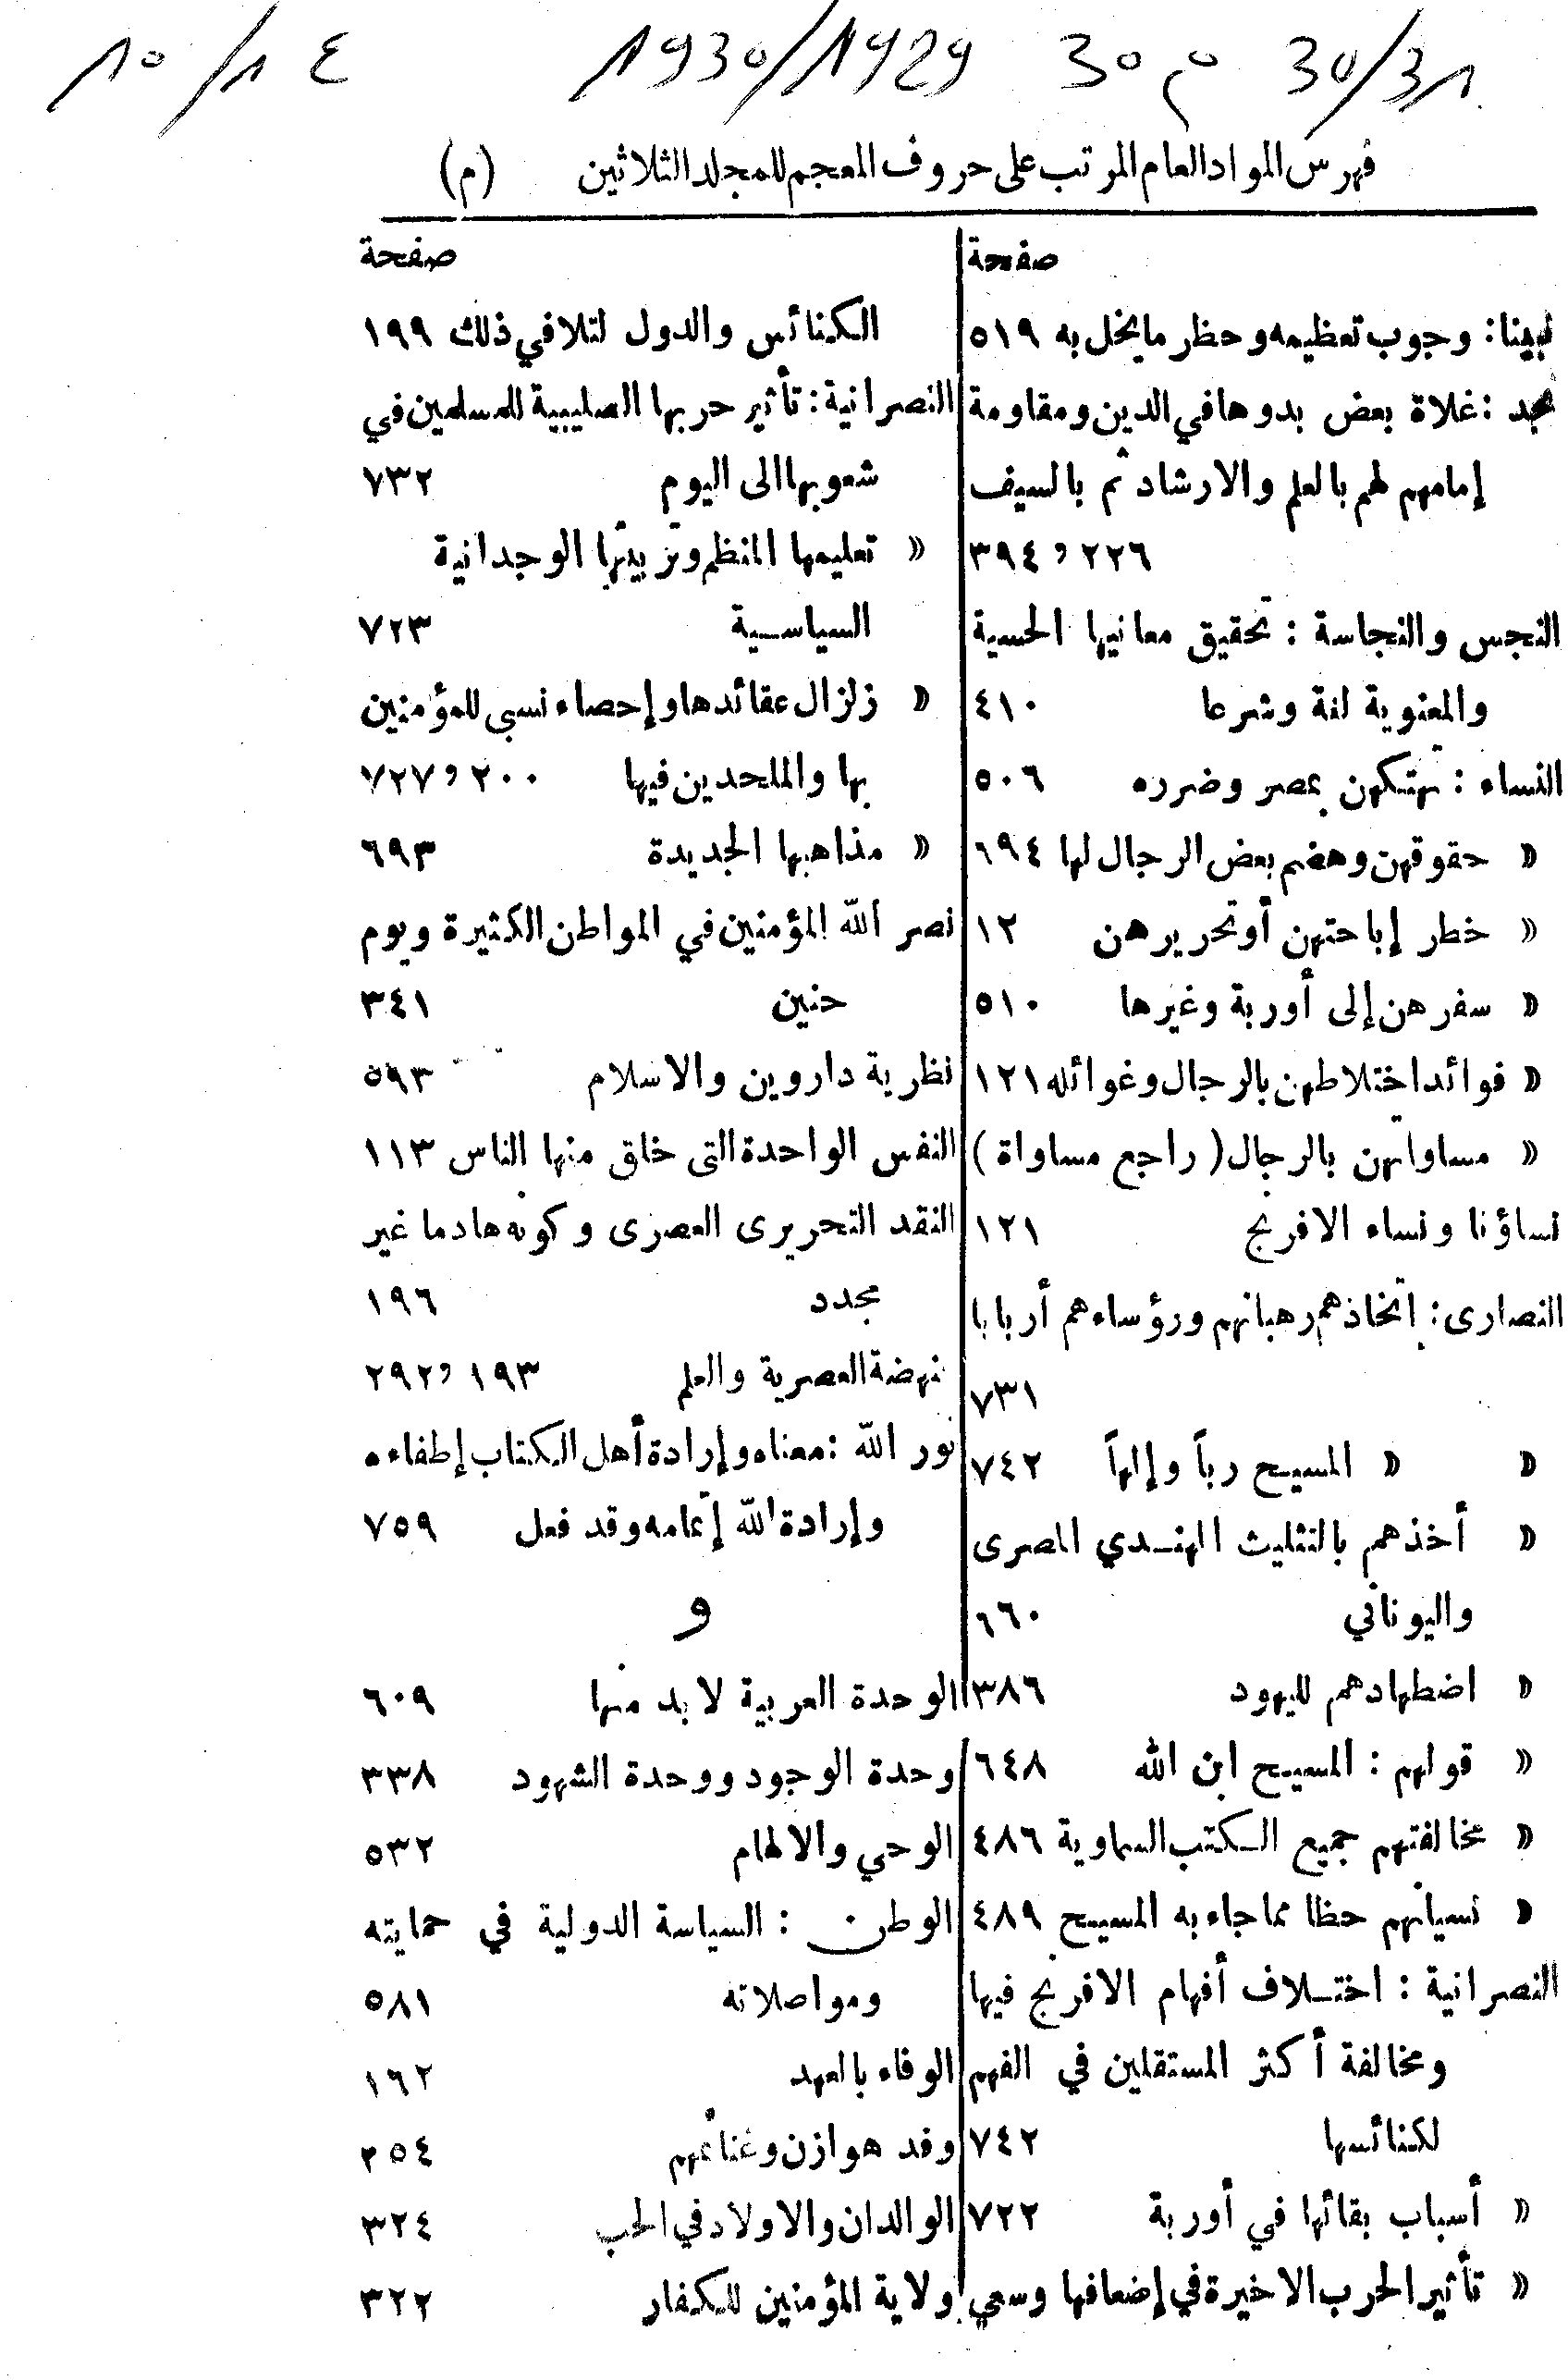 30/31 م 30 1930/1929 10/14
فهرس المواد العام المرتب على حروف المعجم للمجلد الثلاثين (م)
صفحة
نبينا: وجوب تعظيمه وحظر ما يخل به ٥١٩
نجد: غلاة بعض بدوها في الدين ومقاومة
إمامهم لهم بالعلم والارشاد ثم بالسيف
٢٢٦ و ٣٩٤
النجس والنجاسة: تحقيق معانيها الحسية
والمعنوية لغة وشرعا ٤١٠
النساء: تهتكهن بمصر وضرره ٥٠٦
« حقوقهن وهضم بعض الرجال لها ٦٩٤
« خطر إباحتهن أو تحريرهن ١٢
« سفرهن إلى أوربة وغيرها ٥١٠
« فوائد اختلاطهن بالرجال وغوائله ١٢١
« مساواتهن بالرجال (راجع مساواة)
نساؤنا ونساء الافرنج ١٢١
النصارى: اتخاذهم رهبانهم ورؤساءهم أربابا
٧٣١
« « المسيح رباً وإلهاً ٧٤٢
« أخذهم بالتثليث الهندي المصرى
واليوناني ٦٦٠
« اضطهادهم لليهود ٣٨٦
« قولهم: المسيح ابن الله ٦٤٨
« مخالفتهم جميع الكتب السماوية ٤٨٦
« نسيانهم حظا مما جاء به المسيح ٤٨٩
النصرانية: اختلاف أفهام الافرنج فيها
ومخالفة أكثر المستقلين في الفهم
لكنائسها ٧٤٢
« أسباب بقائها في أوربة ٧٢٢
« تأثير الحرب الاخيرة في إضعافها وسعي
صفحة
الكنائس والدول لتلافي ذلك ١٩٩
النصرانية: تأثير حربها الصليبية للمسلمين في
شعوبها الى اليوم ٧٣٢
« تعليمها المنظم وتربيتها الوجدانية
السياسية ٧٢٣
« زلزال عقائدها وإحصاء نسبي للمؤمنين
بها والملحدين فيها ٢٠٠ و ٧٢٧
« مذاهبها الجديدة ٦٩٣
نصر الله المؤمنين في المواطن الكثيرة ويوم
حنين ٣٤١
نظرية داروين والاسلام ٥٩٣
النفس الواحدة التى خلق منها الناس ١١٣
النقد التحريرى العصرى وكونه هادما غير
مجدد ١٩٦
نهضة العصرية والعلم ١٩٣ و ٢٩٢
نور الله: معناه وإرادة أهل الكتاب إطفاءه
وإرادة الله إتمامه وقد فعل ٧٥٩
و
الوحدة العربية لا بد منها ٦٠٩
وحدة الوجود ووحدة الشهود ٣٣٨
الوحي والالهام ٥٣٢
الوطن: السياسة الدولية في حمايته
ومواصلاته ٥٨١
الوفاء بالعهد ١٦٢
وفد هوازن وغنائمهم ٢٥٤
الوالدان والاولاد في الحب ٣٢٤
ولاية المؤمنين للكفار ٣٢٢